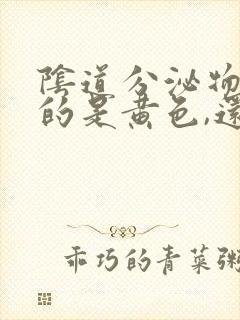 陰道分泌物
的是黃色,還
乖巧的青菜粥